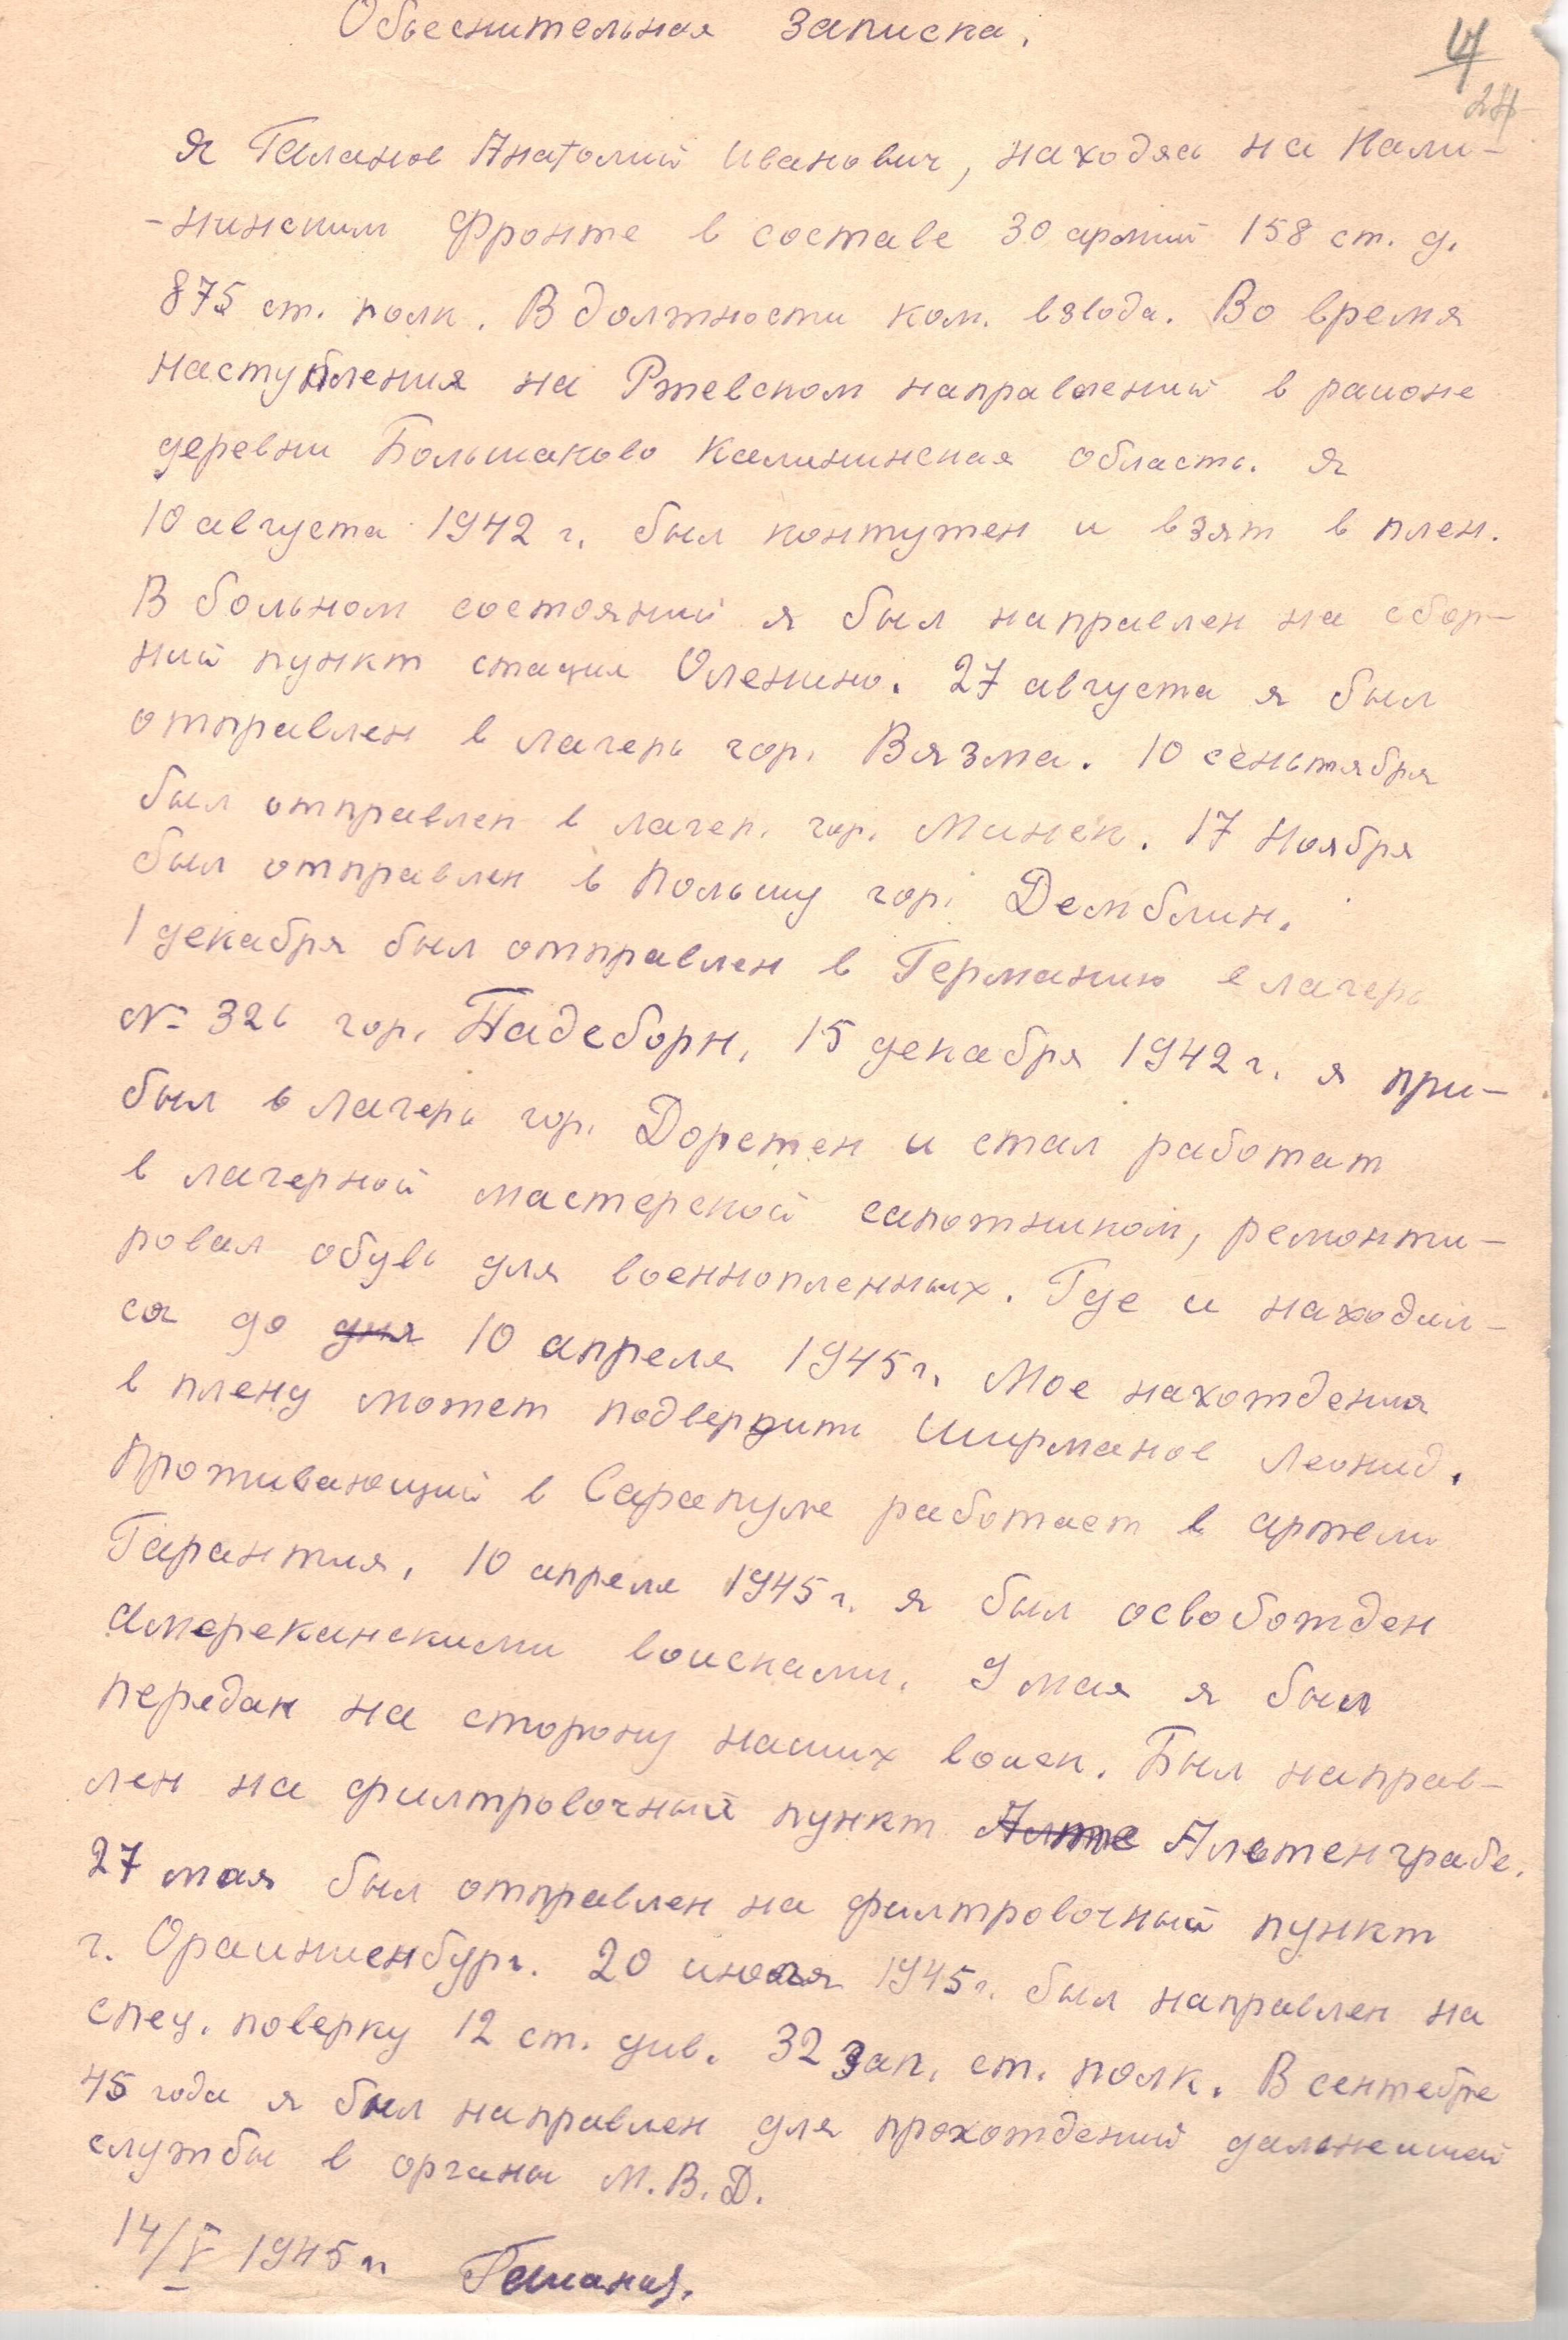 Обьеснительная записка.
4
24
Я Галанов Анатолий Иванович, находяс на Кали-
-нинском фронте в составе 30 армий 158 ст. д.
875 ст. полк. В должности ком. взвода. Во время
наступления на Ржевском направлений в раионе
деревни Большаково Калининская область. я
10 августа 1942 г. был контужен и взят в плен.
В больном состояний я был направлен на сбор-
ний пункт стация Оленино. 27 августа я был
отправлен в лагерь гор. Вязма. 10 сеньтября
был отправлен в лагер. гор. Минск. 17 Ноября
был отправлен в Польшу гор. Демблин.
1 декабря был отправлен в Германию в лагерь
№ 326 гор. Падеборн. 15 декабря 1942 г. я при-
был в лагерь гор. Дорстен и стал работат
в лагерной мастерской сапожником, ремонти-
ровал обувь для военнопленных. Где и находил-
ся до дня 10 апреля 1945 г. Мое нахождения
в плену может подвердить Ширманов Леонид.
Проживающий в Сарапуле работает в артели
Гарантия. 10 апреля 1945 г. я был освобожден
Американскими воисками. 9 мая я был
передан на сторону наших воиск. Был направ-
лен на филтровочный пункт Алте Альтенграбе.
27 мая был отправлен на филтровочный пункт
г. Ораниенбург. 20 июля 1945 г. был направлен на
спец. поверку 12 ст. див. 32 зап. ст. полк. В сентебре
45 года я был направлен для прохождений дальнеишей
службы в органы М.В.Д.
14/V 1945 г. Галанов.